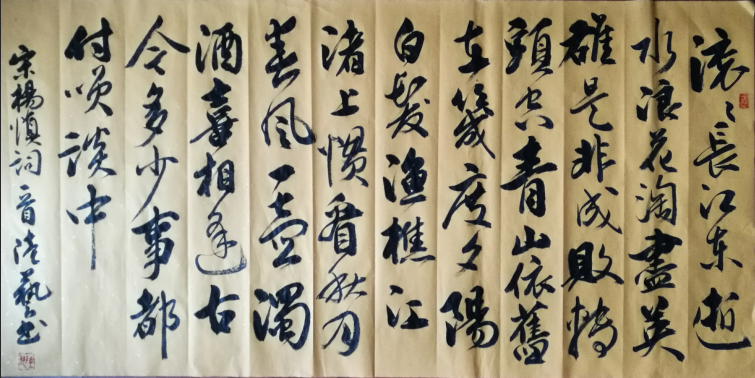 滚々長江东逝
水浪花淘盡英
雄是非成敗轉
頭空青山依舊
在幾度夕陽
白髮漁樵江
渚上惯看秋月
春风一壶濁
酒喜相逢古
今多少事都
付笑談中
宋楊慎詞一首陸藝书